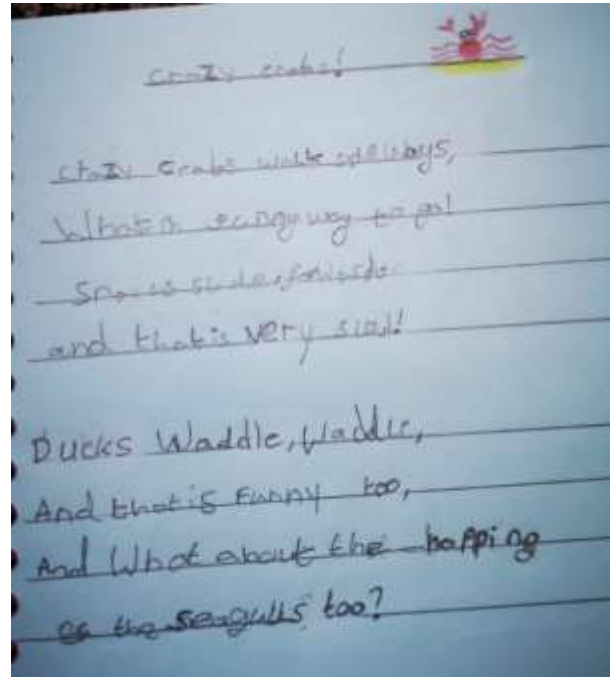 crazy crabs!
crazy crabs walk sideways,
What a way to go!
Snails slide, forwards
and that is very slow!
Ducks Waddle, Waddle,
And that is Funny too,
And What about the hopping
of the seagulls too?